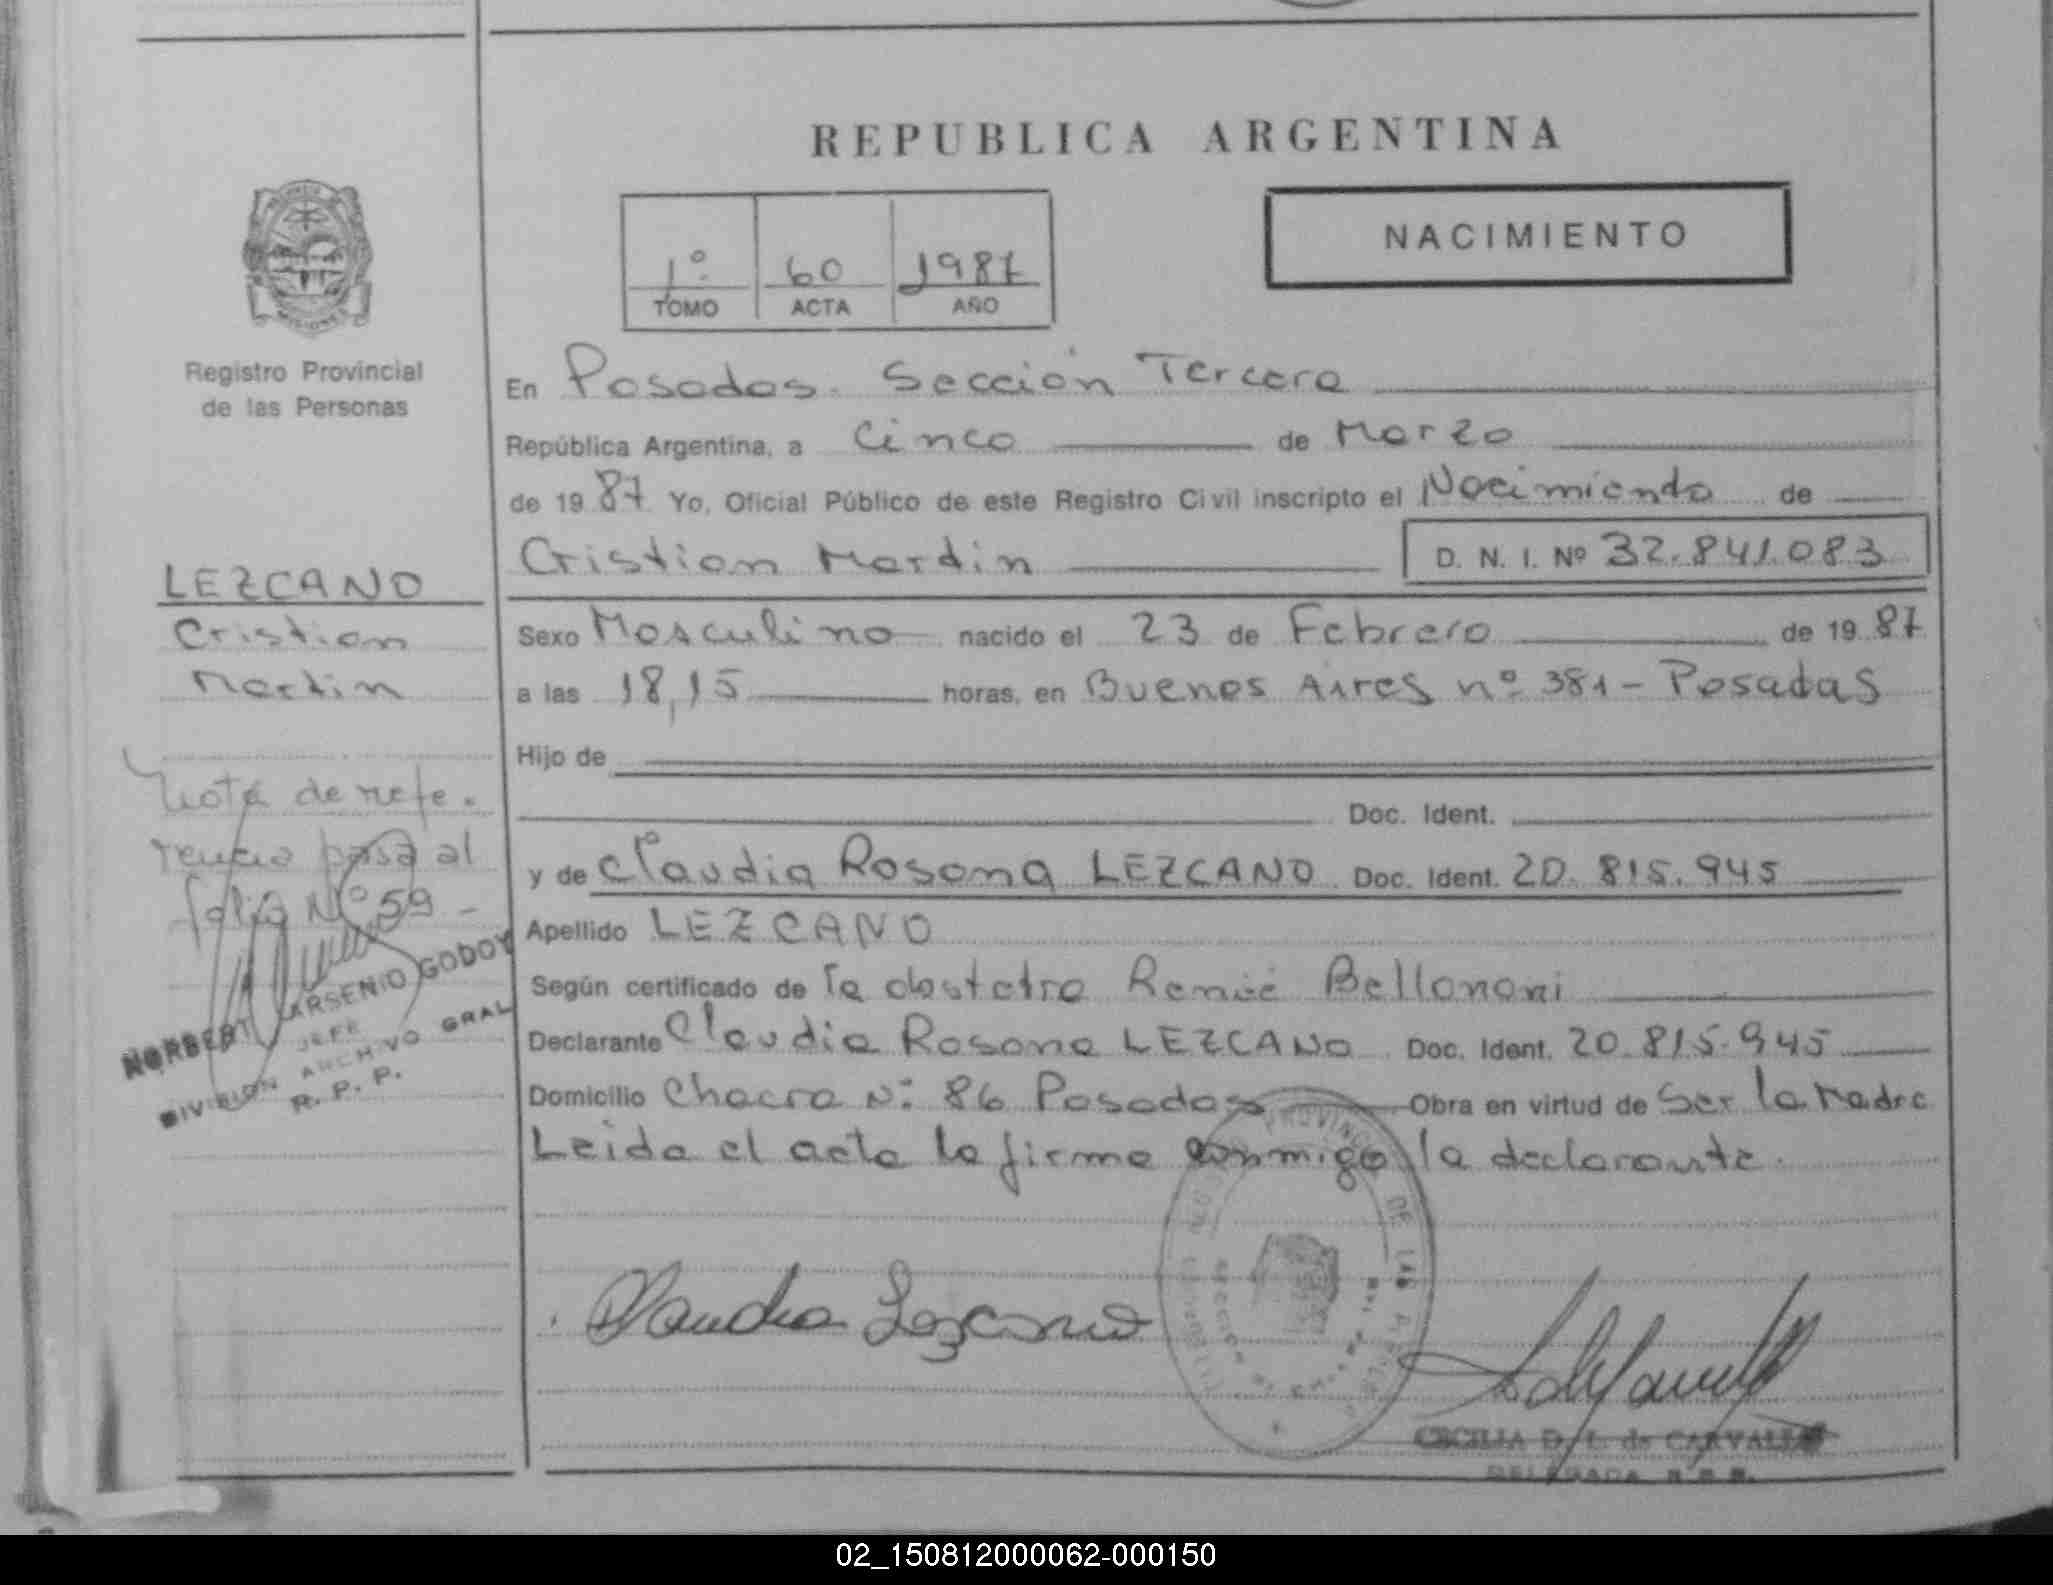 REPUBLICA ARGENTINA
NACIMIENTO
1º 60 1987
TOMO ACTA AÑO
MISIONES
Registro Provincial
de las Personas
En Posadas. Sección Tercera
República Argentina, a Cinco de Marzo
de 1987 Yo, Oficial Público de este Registro Civil inscripto el Nacimiento de
Cristian Martin D. N. I. Nº 32.841.083
LEZCANO
Cristian
Martin
Sexo Masculino nacido el 23 de Febrero de 1987
a las 18,15 horas, en Buenos Aires nº 381 - Posadas
Hijo de
Doc. Ident.
y de Claudia Rosana LEZCANO Doc. Ident. 20.815.945
Apellido LEZCANO
Según certificado de la obstetra Bellonani
Declarante Claudia Rosana LEZCANO Doc. Ident. 20.815.945
Domicilio Chacra Nº 86 Posadas Obra en virtud de Ser la Madre
Leida el acta la firma conmigo la declarante.
Nota de refe.
rencia pasa al
folio Nº 59 -
NORBERTO ARSENIO GODOY
JEFE
DIVISION ARCHIVO GRAL
R. P. P.
Claudia Lezcano
PROVINCIAL DE LAS
CECILIA D. L. de CARVALLO
DELEGADA
02_150812000062-000150